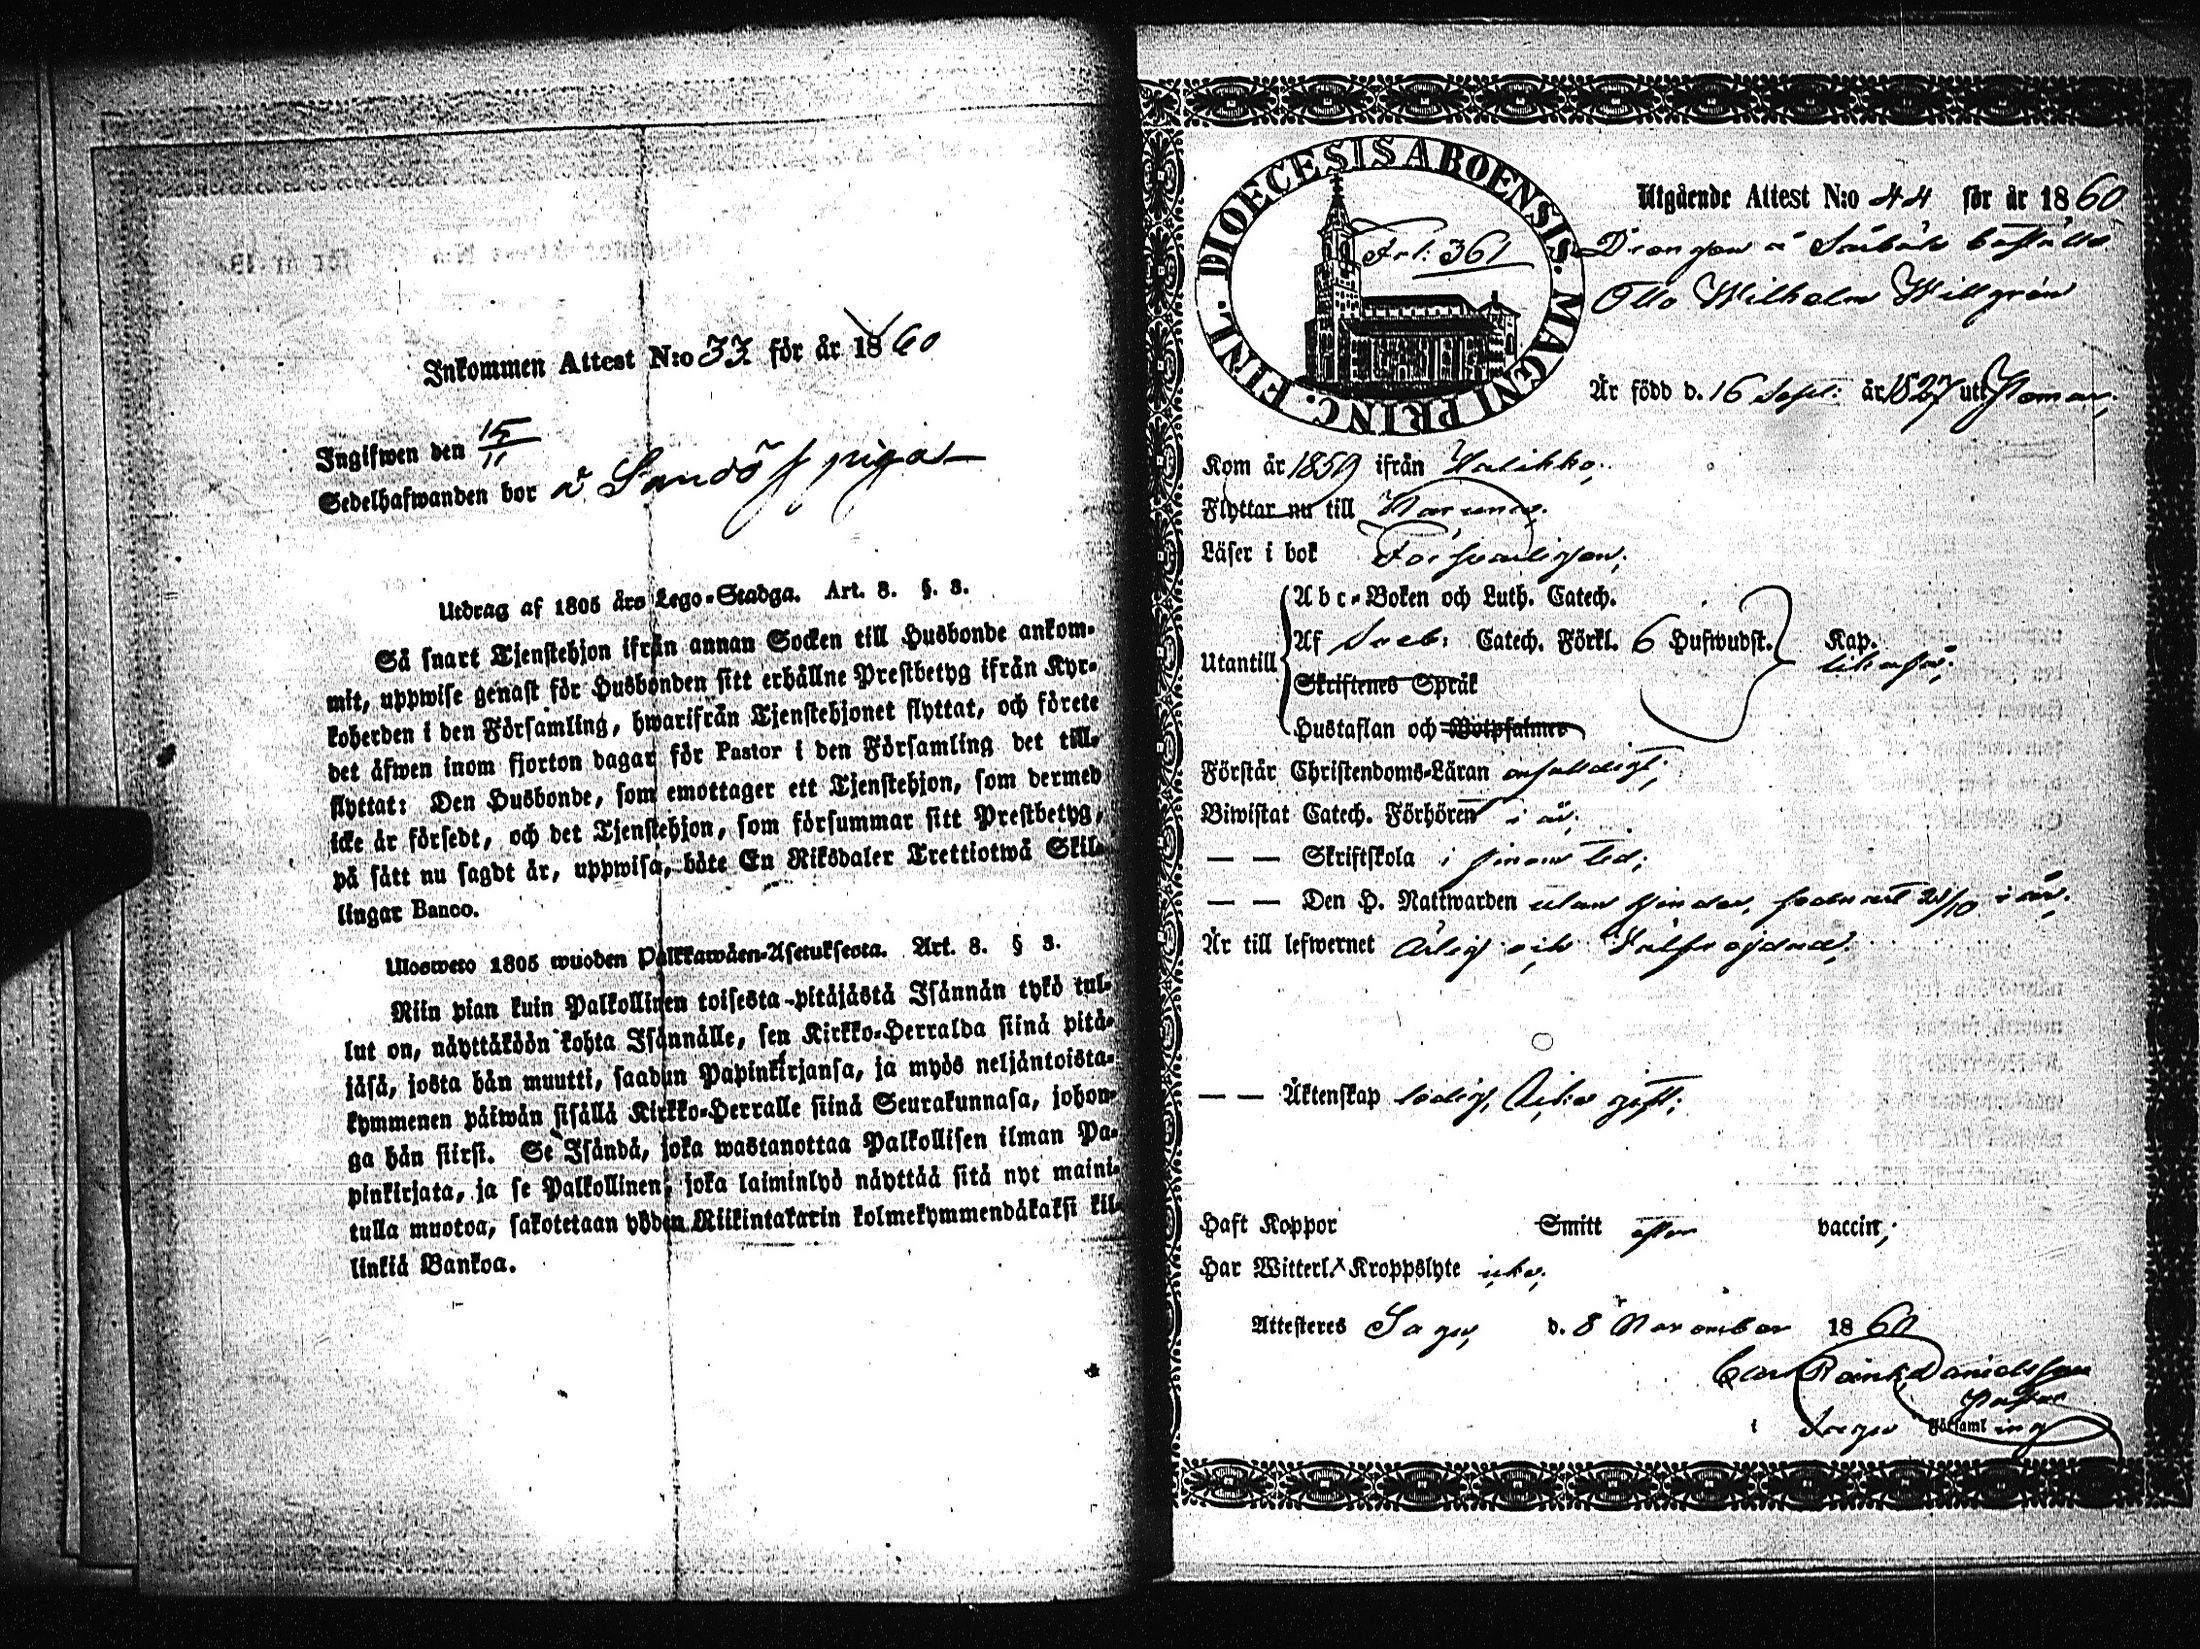 Inkommen Attest N:o 33 för år 1860
Ingifwen den 15/11
Sedelhafwanden bor å Sandö
Utdrag af 1805 års Lego-Stadga. Art. 3. §. 3.
Så snart Tjenstehjon ifrån annan Socken till Husbonde ankom-
mit, uppwise genast för Husbonden sitt erhållne Prestbetyg ifrån Kyr-
koherden i den Församling, hwarifrån Tjenstehjonet flyttat, och förete
det äfwen inom fjorton dagar för Pastor i den Församling det till-
flyttat: Den Husbonde, som emottager ett Tjenstehjon, som dermed
icke är försedt, och det Tjenstehjon, som försummar sitt Prestbetyg,
på sätt nu sagdt är, uppwisa, böte En Riksdaler Trettiotwå Skil-
lingar Banco.
Ulosweto 1805 wuoden Palkkawäen-Asetuksesta. Art. 3. § 3.
Niin pian kuin Palkollinen toisesta pitäjästä Isännän tykö tul-
lut on, näyttäköön kohta Isännälle, sen Kirkko-Herralda siinä pitä-
jäsä, josta hän muutti, saadun Papinkirjansa, ja myös neljäntoista-
kymmenen päiwän sisällä Kirkko-Herralle siinä Seurakunnasa, johon-
ga hän siirsi. Se Isändä, joka wastanottaa Palkollisen ilman Pa-
pinkirjata, ja se Palkollinen, joka laiminlyö näyttää sitä nyt maini-
tulla muotoa, sakotetaan yhden Riikintakarin kolmekymmendäkaksi kil-
linkiä Bankoa.
DIOECESIS ABOENSIS. MAGNI PRINC. FINL.
Fol: 361
Utgående Attest N:o 44 för år 1860
Drengen å
Otto Wilhelm Willgrén
Är född d. 16 Sept: år 1827 uti Pemar,
Kom år 1859 ifrån Halikko,
Flyttar nu till Karuna.
Läser i bok Försvarligen,
Utantill
Abc-Boken och Luth. Catech.
Af Sveb: Catech. Förkl. 6 Hufwudst. Kap.
Skriftenes Språk
Hustaflan och Botpsalmer
Förstår Christendoms-Läran enfaldigt,
Biwistat Catech. Förhören i år,
— — Skriftskola i sinom tid,
— — Den H. Nattwarden utan hinder, sednast 21/10 i år,
Är till lefwernet ärlig och wälfrejdad,
— — Äktenskap ledig, icke gift,
Haft Koppor Smitt efter vaccin,
Har Witterl. Kroppslyte icke,
Attesteres Sagu, d. 8 November 1860
Carl Reinh. Danielsson
Pastor
i Sagu Församling